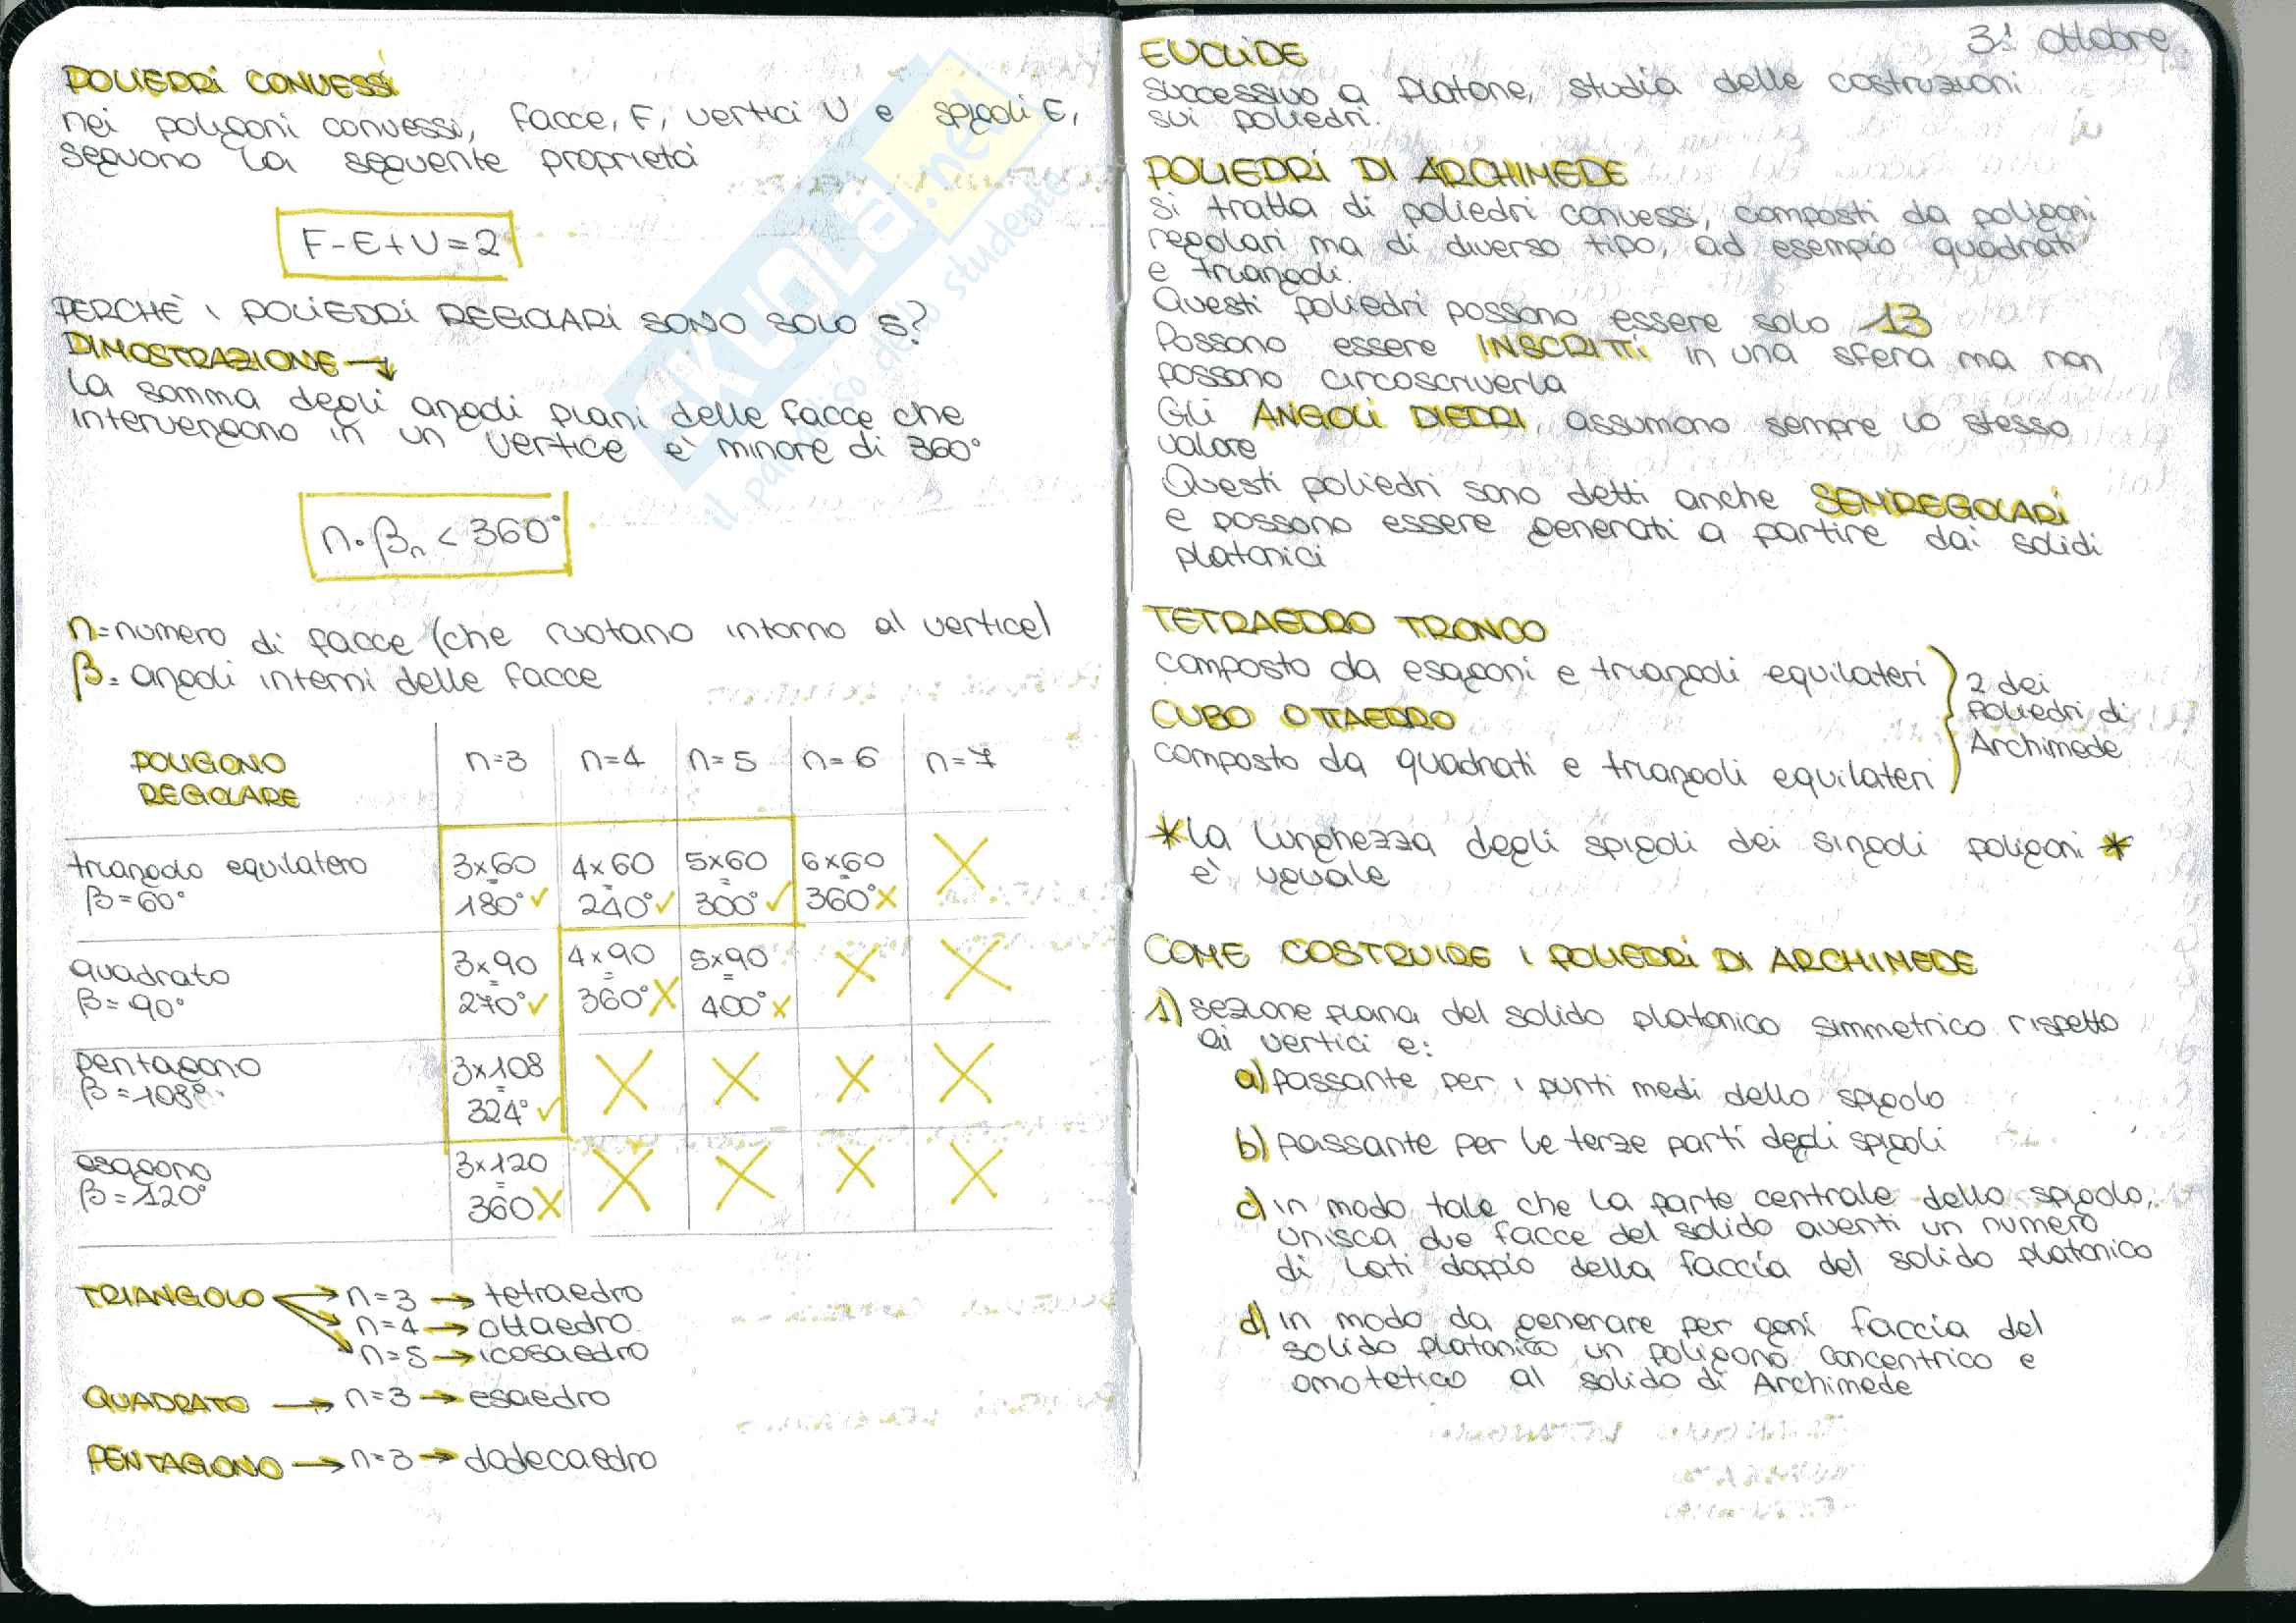 POLIEDRI CONVESSI
nei poligoni convessi, facce, F, vertici V e spigoli E,
seguono la seguente proprietà
F-E+V=2
PERCHÈ i POLIEDRI REGOLARI SONO SOLO 5?
DIMOSTRAZIONE →
la somma degli angoli piani delle facce che
intervengono in un vertice è minore di 360°
n·βn < 360°
n=numero di facce (che ruotano intorno al vertice)
β= angoli interni delle facce
POLIGONO REGOLARE n=3 n=4 n=5 n=6 n=7
triangolo equilatero 3x60 4x60 5x60 6x60 X
β=60° = = = =
180°✓ 240°✓ 300°✓ 360°X
quadrato 3x90 4x90 5x90 X X
β=90° = = =
270°✓ 360°X 400°X
pentagono 3x108 X X X X
β=108° =
324°✓
esagono 3x120 X X X X
β=120° =
360X
TRIANGOLO → n=3 → tetraedro
→ n=4 → ottaedro
→ n=5 → icosaedro
QUADRATO → n=3 → esaedro
PENTAGONO → n=3 → dodecaedro
31 Ottobre
EUCLIDE
successivo a Platone, studia delle costruzioni
sui poliedri.
POLIEDRI DI ARCHIMEDE
si tratta di poliedri convessi, composti da poligoni
regolari ma di diverso tipo, ad esempio quadrati
e triangoli.
Questi poliedri possono essere solo 13
Possono essere INSCRITTI in una sfera ma non
possono circoscriverla
Gli ANGOLI DIEDRI assumono sempre lo stesso
valore
Questi poliedri sono detti anche SEMIREGOLARI
e possono essere generati a partire dai solidi
platonici
TETRAEDRO TRONCO
composto da esagoni e triangoli equilateri
CUBO OTTAEDRO
composto da quadrati e triangoli equilateri
2 dei
Poliedri di
Archimede
*la lunghezza degli spigoli dei singoli poligoni *
è uguale
COME COSTRUIRE I POLIEDRI DI ARCHIMEDE
1) sezione piana del solido platonico simmetrico rispetto
ai vertici e:
a) passante per i punti medi dello spigolo
b) passante per le terze parti degli spigoli
c) in modo tale che la parte centrale dello spigolo,
unisca due facce del solido aventi un numero
di lati doppio della faccia del solido platonico
d) in modo da generare per ogni faccia del
solido platonico un poligono concentrico e
omotetico al solido di Archimede
SKUOLA.net
il paradiso dello studente